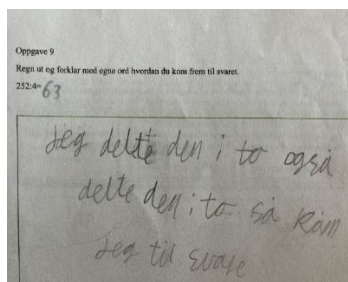 Oppgave 9
Regn ut og forklar med egne ord hvordan du kom frem til svaret.
252:4= 63
Jeg delte den i to også
delte den i to så kom
Jeg til svare